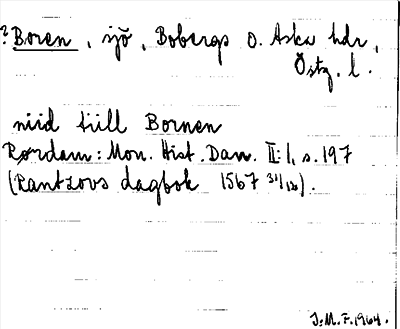 ? Boren, sjö, Bobergs o. Aska hdr,
Östg. l.
niid tiill Bornen
Rørdam: Mon. Hist. Dan. II: 1, s. 197
(Rantzovs dagbok 1567 31/12).
J. M. F. 1964.